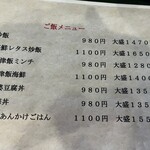 ご飯メニュー
炒飯 980円 大盛1470
海鮮レタス炒飯 1100円 大盛1650
津飯ミンチ 980円 大盛1280
津飯海鮮 1100円 大盛1400
婆豆腐丼 980円 大盛135
丼 980円 大盛135
あんかけごはん 1100円 大盛155